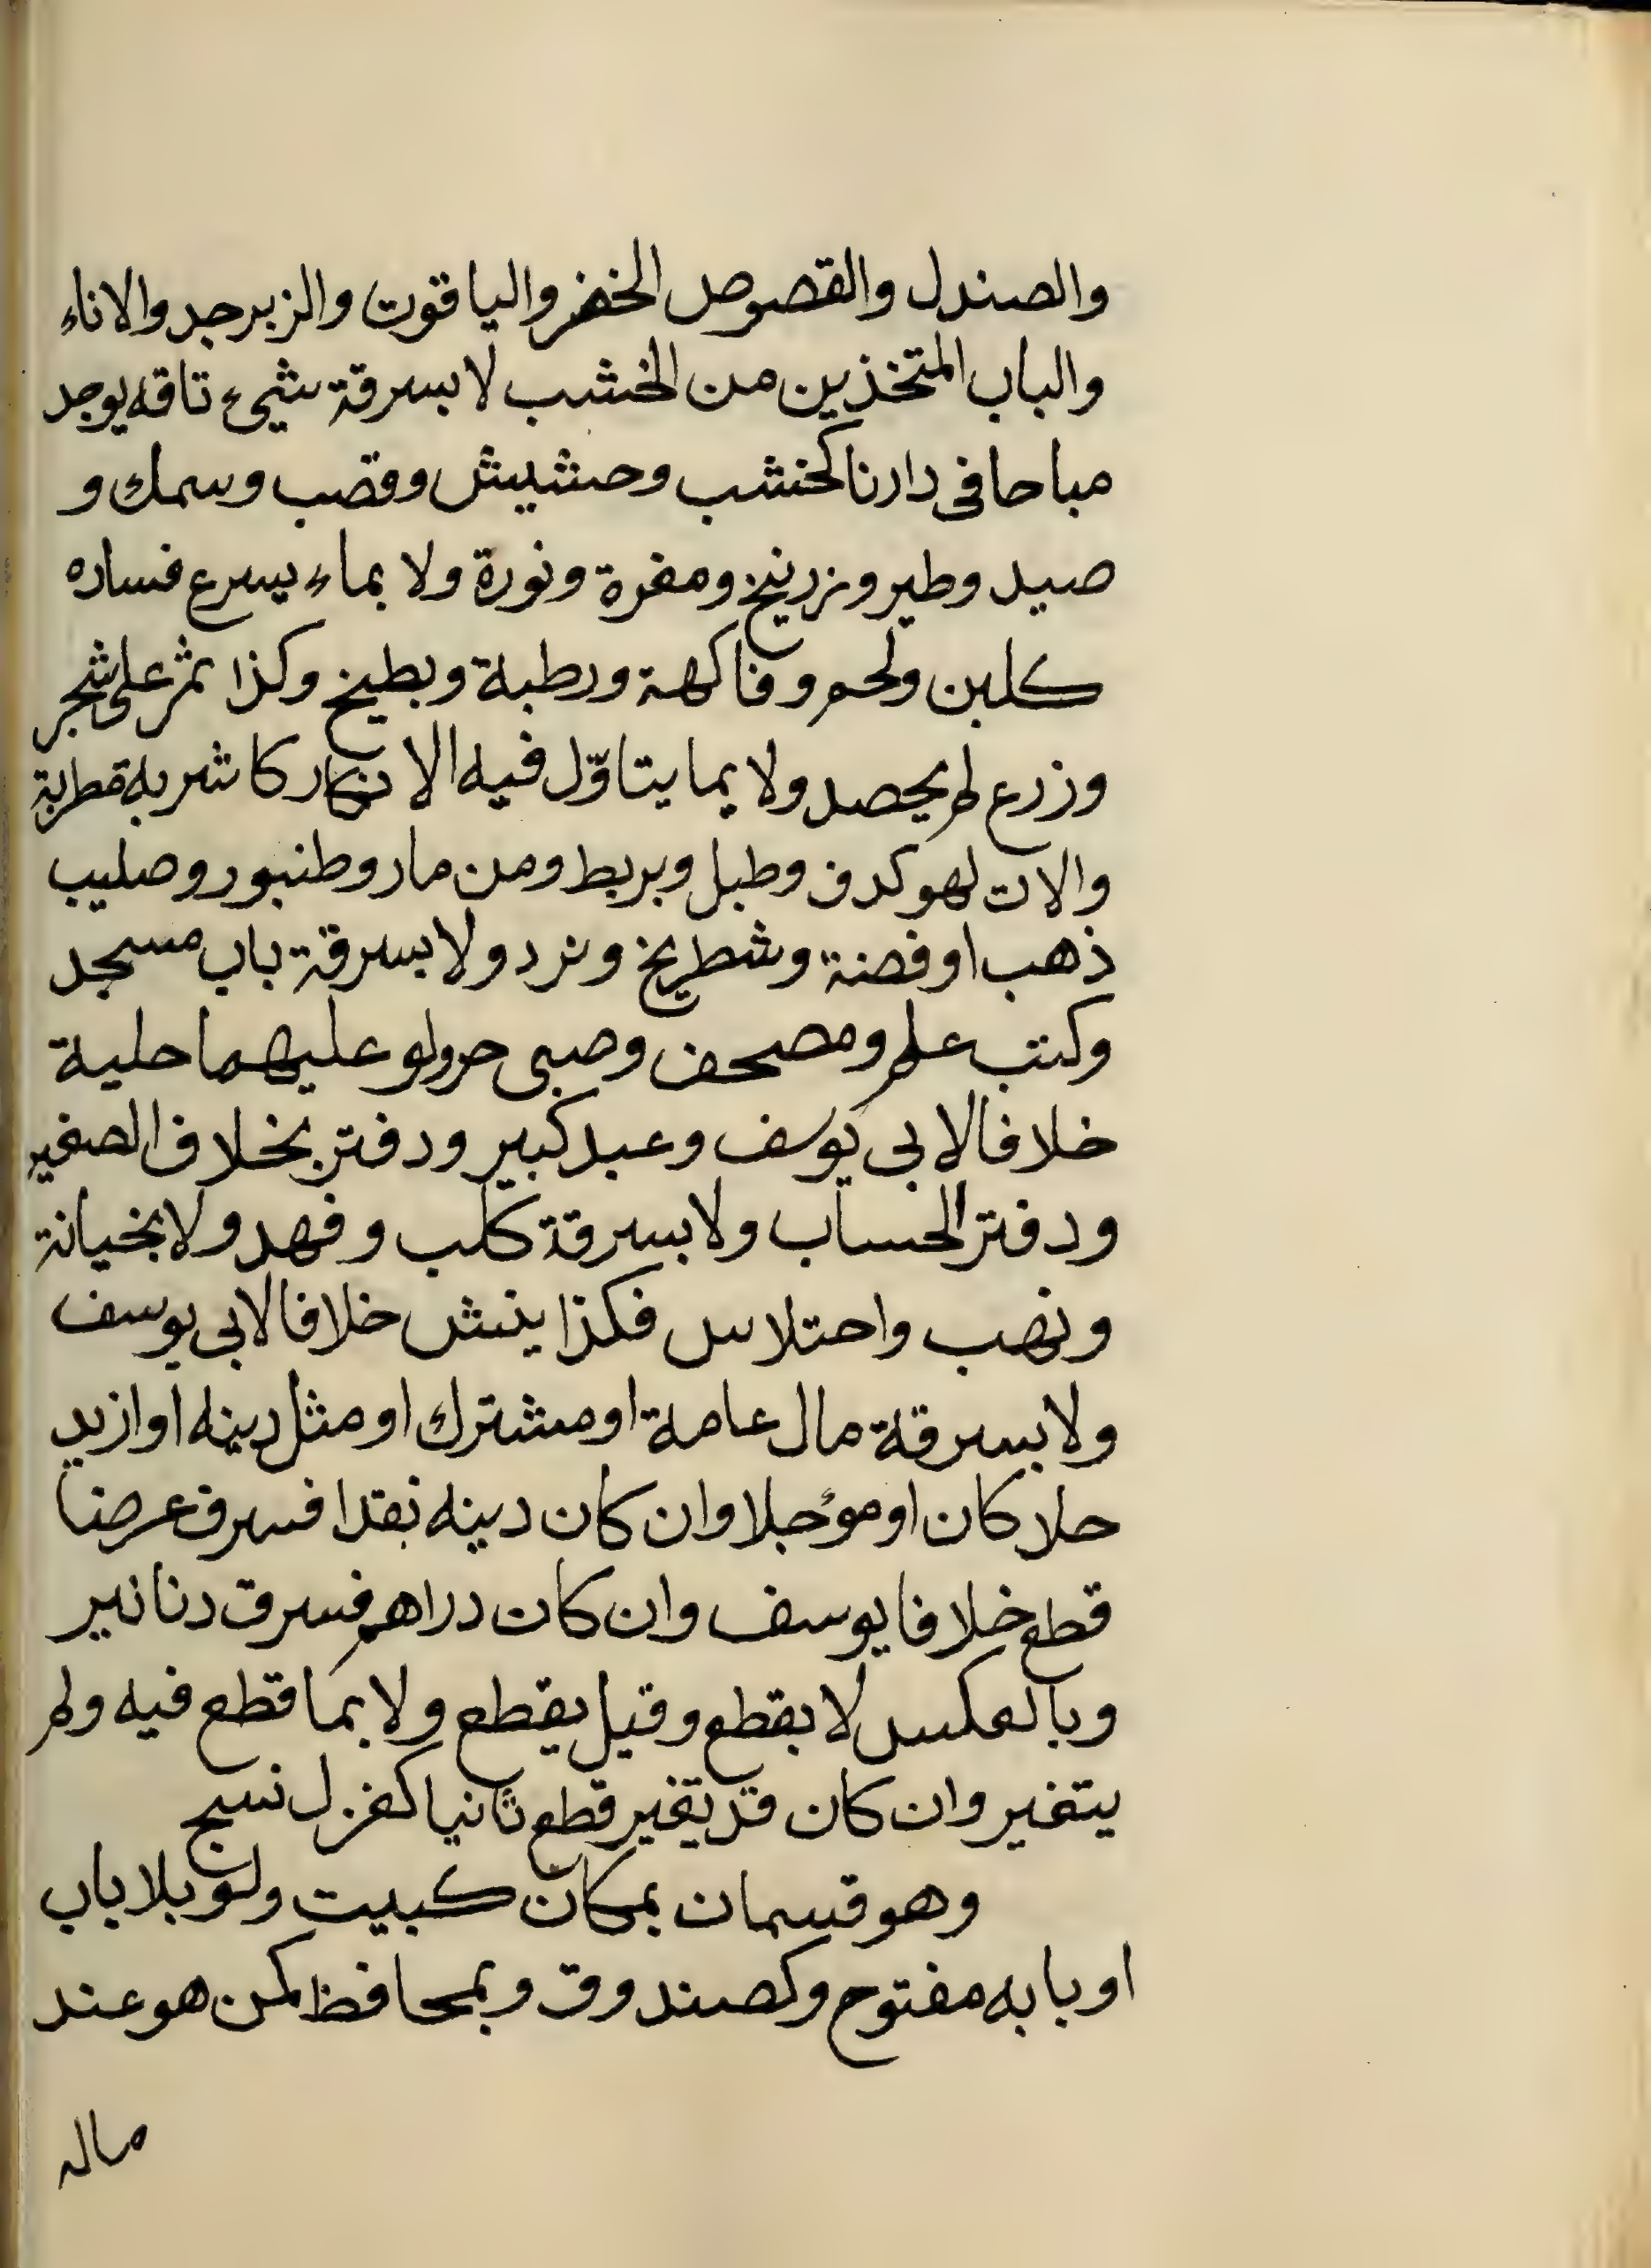 والصندل والقصوص الخضر والياقوت والزبرجد والاناء
والباب المتخذين من الخشب لا بسرقة شيء تاقه يوجد
مباحا فى دارنا كخشب وحشيش وقصب وسمك و
صيد وطير وزرنيخ ومغرة ونورة ولا بماء يسرع فساده
كلبن ولحم وفاكهة ورطبة وبطيخ وكذا ثمر على شجر
وزرع لم يحصد ولا بما يتاوّل فيه الانكار كاشربة مطربة
والات لهو كدف وطبل وبربط ومن مار وطنبور وصليب
ذهب او فضة وشطرنج ونرد ولا بسرقة باب مسجد
وكتب علم ومصحف وصبى حر ولو عليهما حلية
خلافا لابى يوسف وعبد كبير ودفتر بخلاف الصغير
ودفتر الحساب ولا بسرقة كلب وفهد ولا بخيانة
ونهب واحتلاس فكذا ينش خلافا لابى يوسف
ولا بسرقة مال عامة او مشترك او مثل دينه او ازيد
حلا كان او مؤجلا وان كان دينه نقدا فسرق عرضا
قطع خلافا يوسف وان كان دراهم فسرق دنانير
وبالعكس لا يقطع وقيل يقطع ولا بما قطع فيه ولم
يتغير وان كان قد تغير قطع ثانيا كغزل نسج
وهو قسمان بمكان كبيت ولو بلا باب
او بابه مفتوح وكصندوق وبمحافظ كمن هو عند
ماله